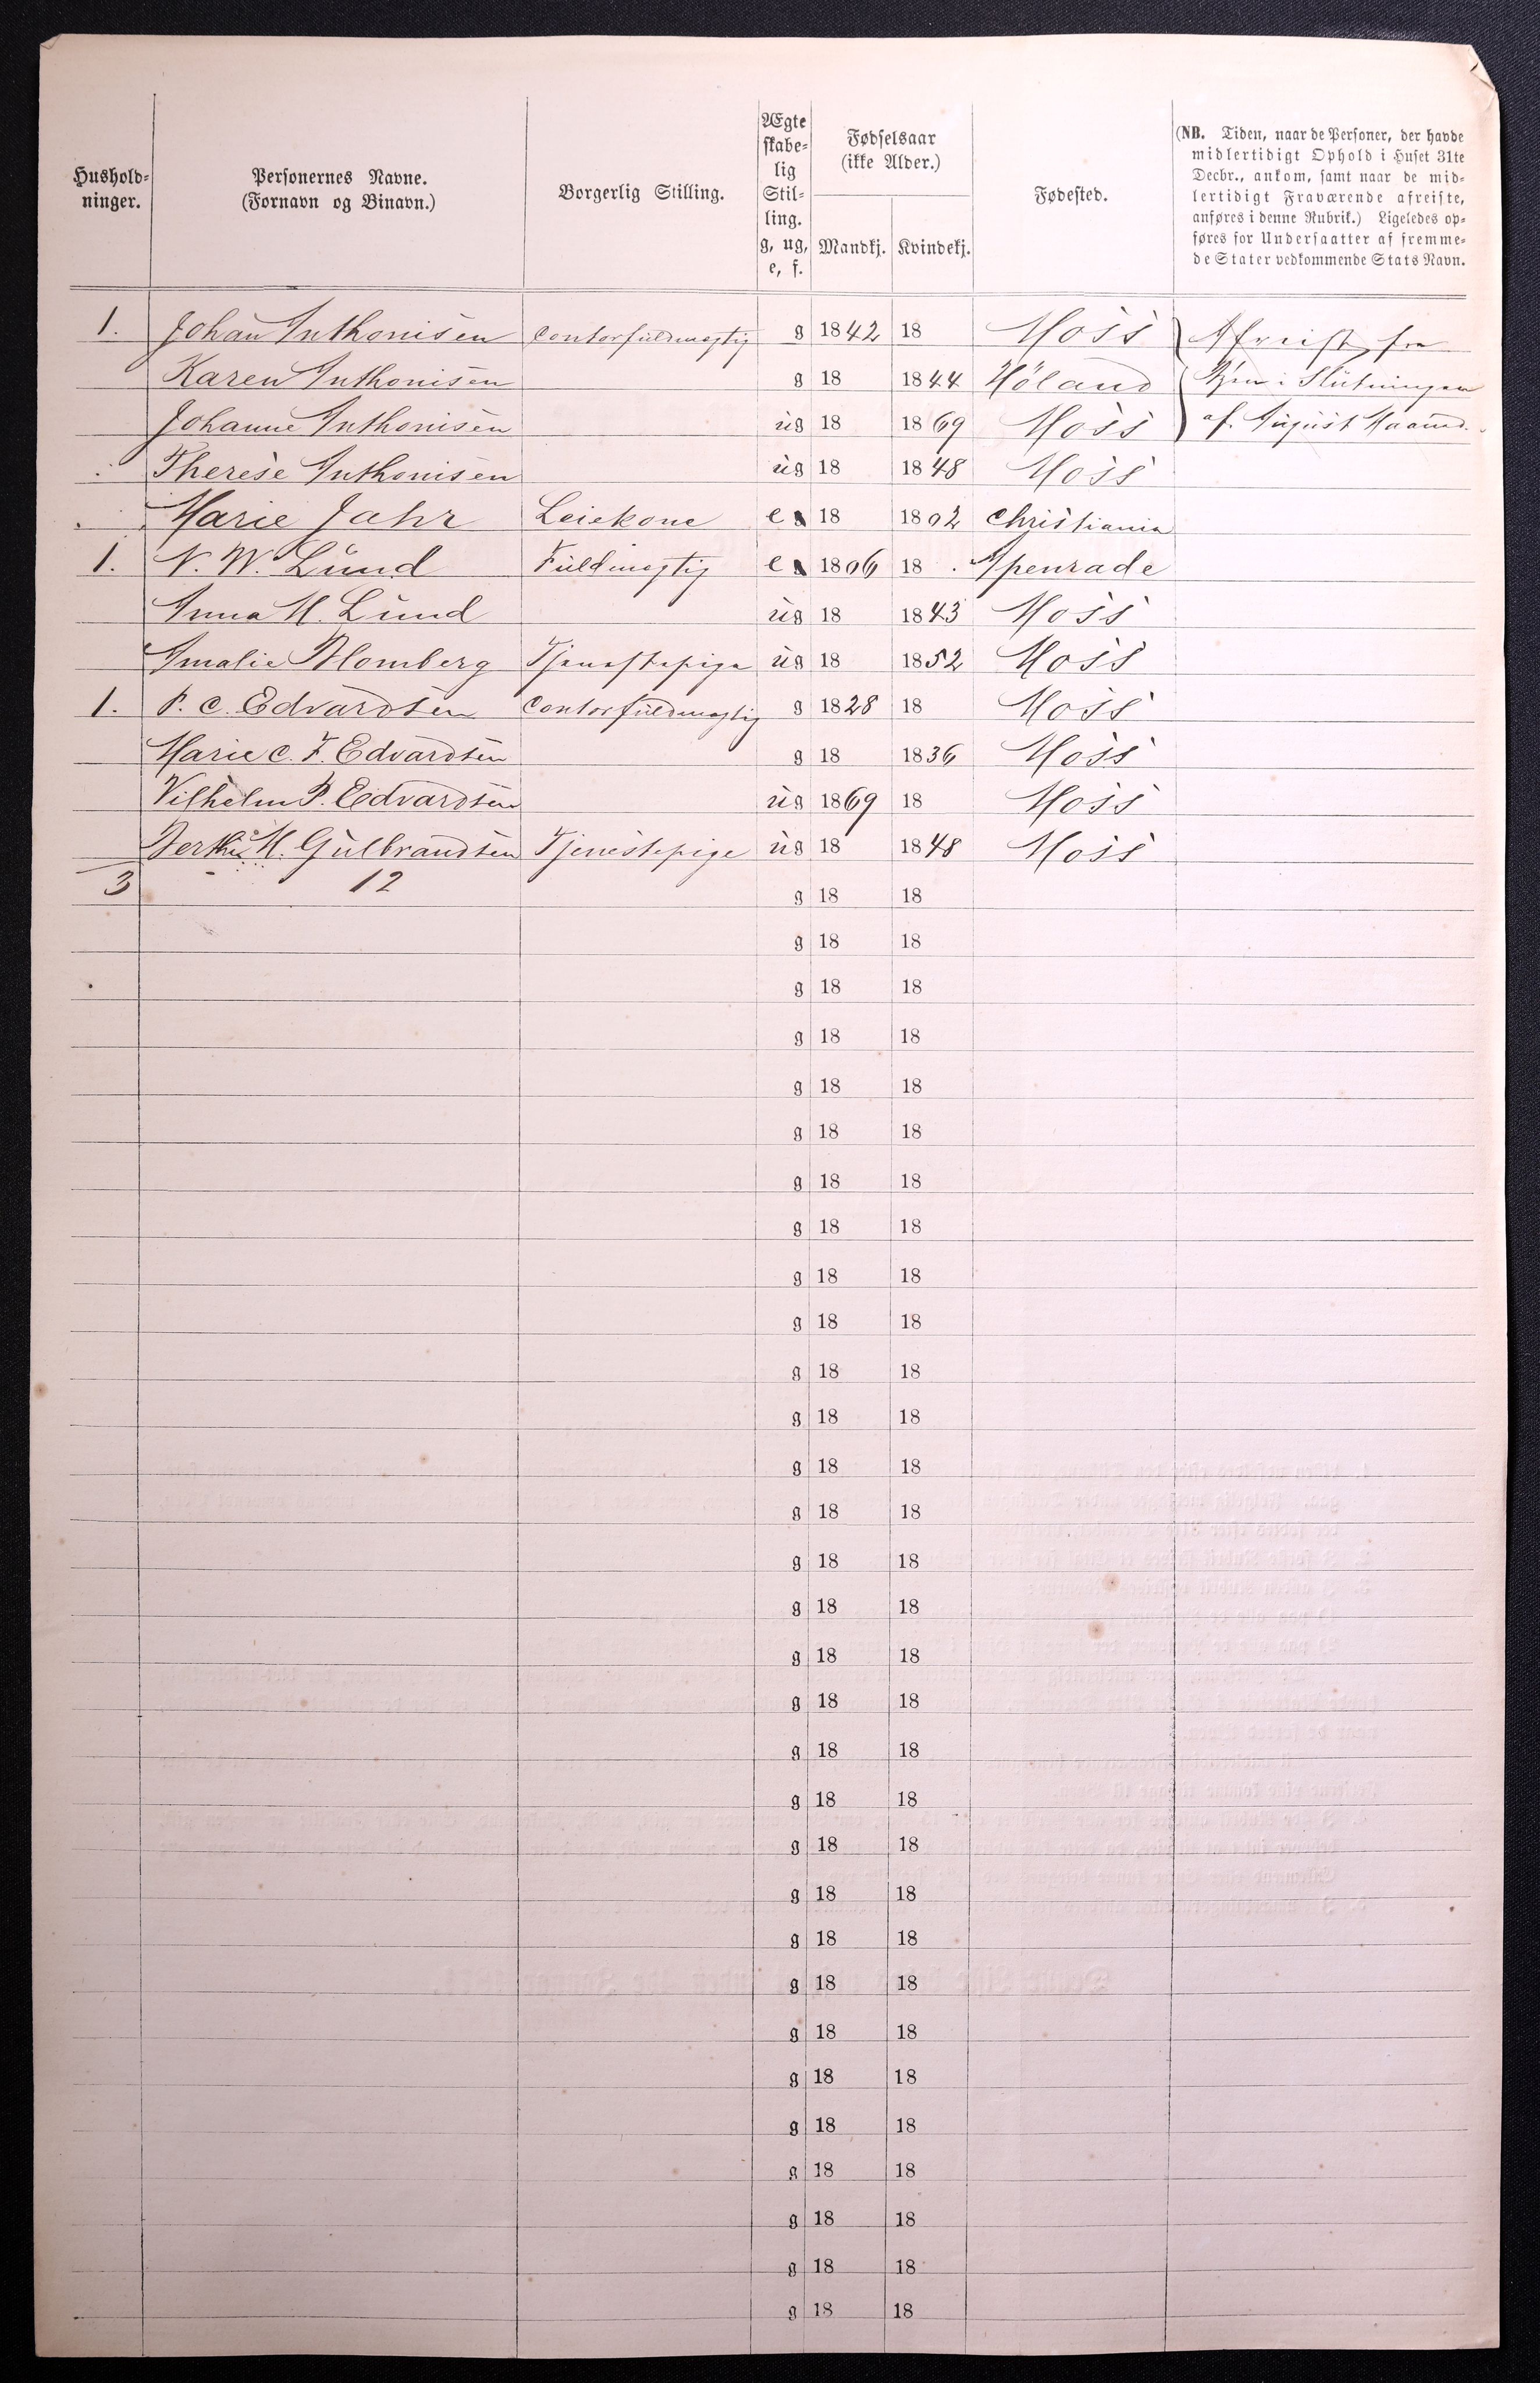 Hushold-
ninger.
Personernes Navne.
(Fornavn og Binavn.)
Borgerlig Stilling.
Ægte
skabe-
lig
Stil-
ling.
g, ug,
e, f.
Fødselsaar
(ikke Alder.)
Mandkj. Kvindekj.
Fødested.
(NB. Tiden, naar de Personer, der havde
midlertidigt Ophold i Huset 31te
Decbr., ankom, samt naar de mid-
lertidigt Fraværende afreiste,
anføres i denne Rubrik.) Ligeledes op-
føres for Undersaatter af fremme-
de Stater vedkommende Stats Navn.
1. Johan Anthonisen Contorfuldmægtig g 1842 18 Moss Afreist fra
Karen Anthonisen g 18 1844 Høland Byen i Slutningen
Johanne Anthonisen ug 18 1869 Moss af August Maaned.
Therese Anthonisen ug 18 1848 Moss
Marie Jahr Leiekone e 18 1802 Christiania
1. N. W. Lund Fuldmægtig e 1806 18 Apenrade
Anna M. Lund ug 18 1843 Moss
Amalie Blomberg Tjenestepige ug 18 1852 Moss
1. P. C. Edvardsen Contorfuldmægtig g 1828 18 Moss
Marie C. F. Edvardsen g 18 1836 Moss
Vilhelm P. Edvardsen ug 1869 18 Moss
Berthe M. Gulbrandsen Tjenestepige ug 18 1848 Moss
3 12 g 18 18
g 18 18
g 18 18
g 18 18
g 18 18
g 18 18
g 18 18
g 18 18
g 18 18
g 18 18
g 18 18
g 18 18
g 18 18
g 18 18
g 18 18
g 18 18
g 18 18
g 18 18
g 18 18
g 18 18
g 18 18
g 18 18
g 18 18
g 18 18
g 18 18
g 18 18
g 18 18
g 18 18
g 18 18
g 18 18
g 18 18